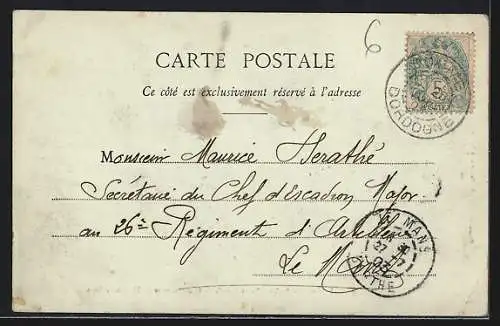 6
CARTE POSTALE
Ce côté est exclusivement réservé à l'adresse
DORDOGNE
Monsieur Maurice Herathé
Secrétaire du Chef d'Escadron Major
au 26e Régiment d'Artillerie
LE MANS
Le Mans